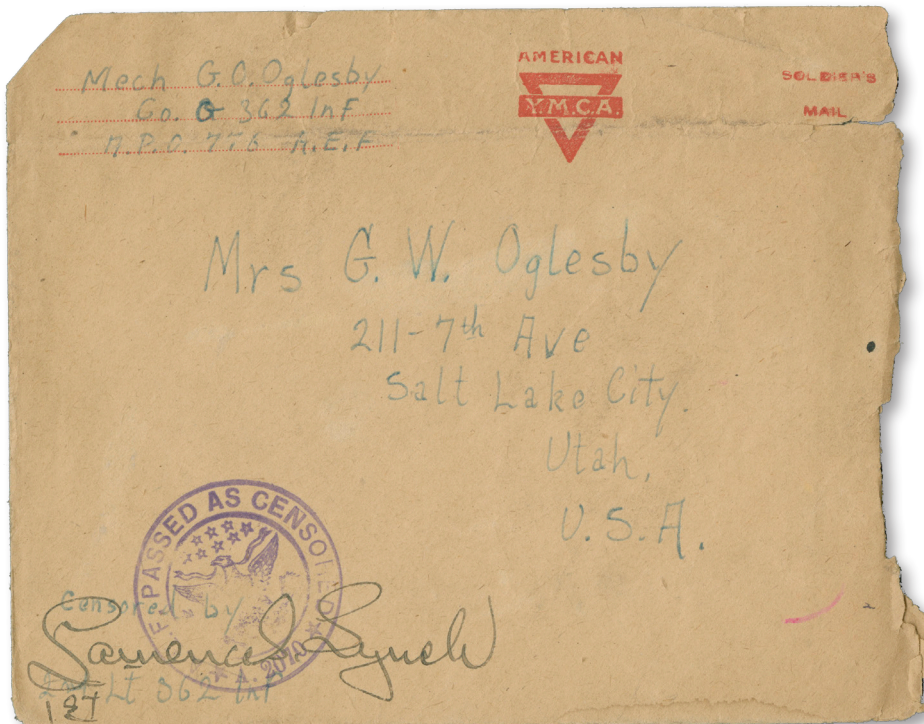 Mech G.C. Oglesby
Co. G 362 Inf
A.P.O. 776 A.E.F
AMERICAN
Y.M.C.A.
SOLDIER'S
MAIL
Mrs G. W. Oglesby
211-7th Ave
Salt Lake City.
Utah,
U.S.A.
PASSED AS CENSORED
Censored by
Lynch
Lt 362 Inf
1st